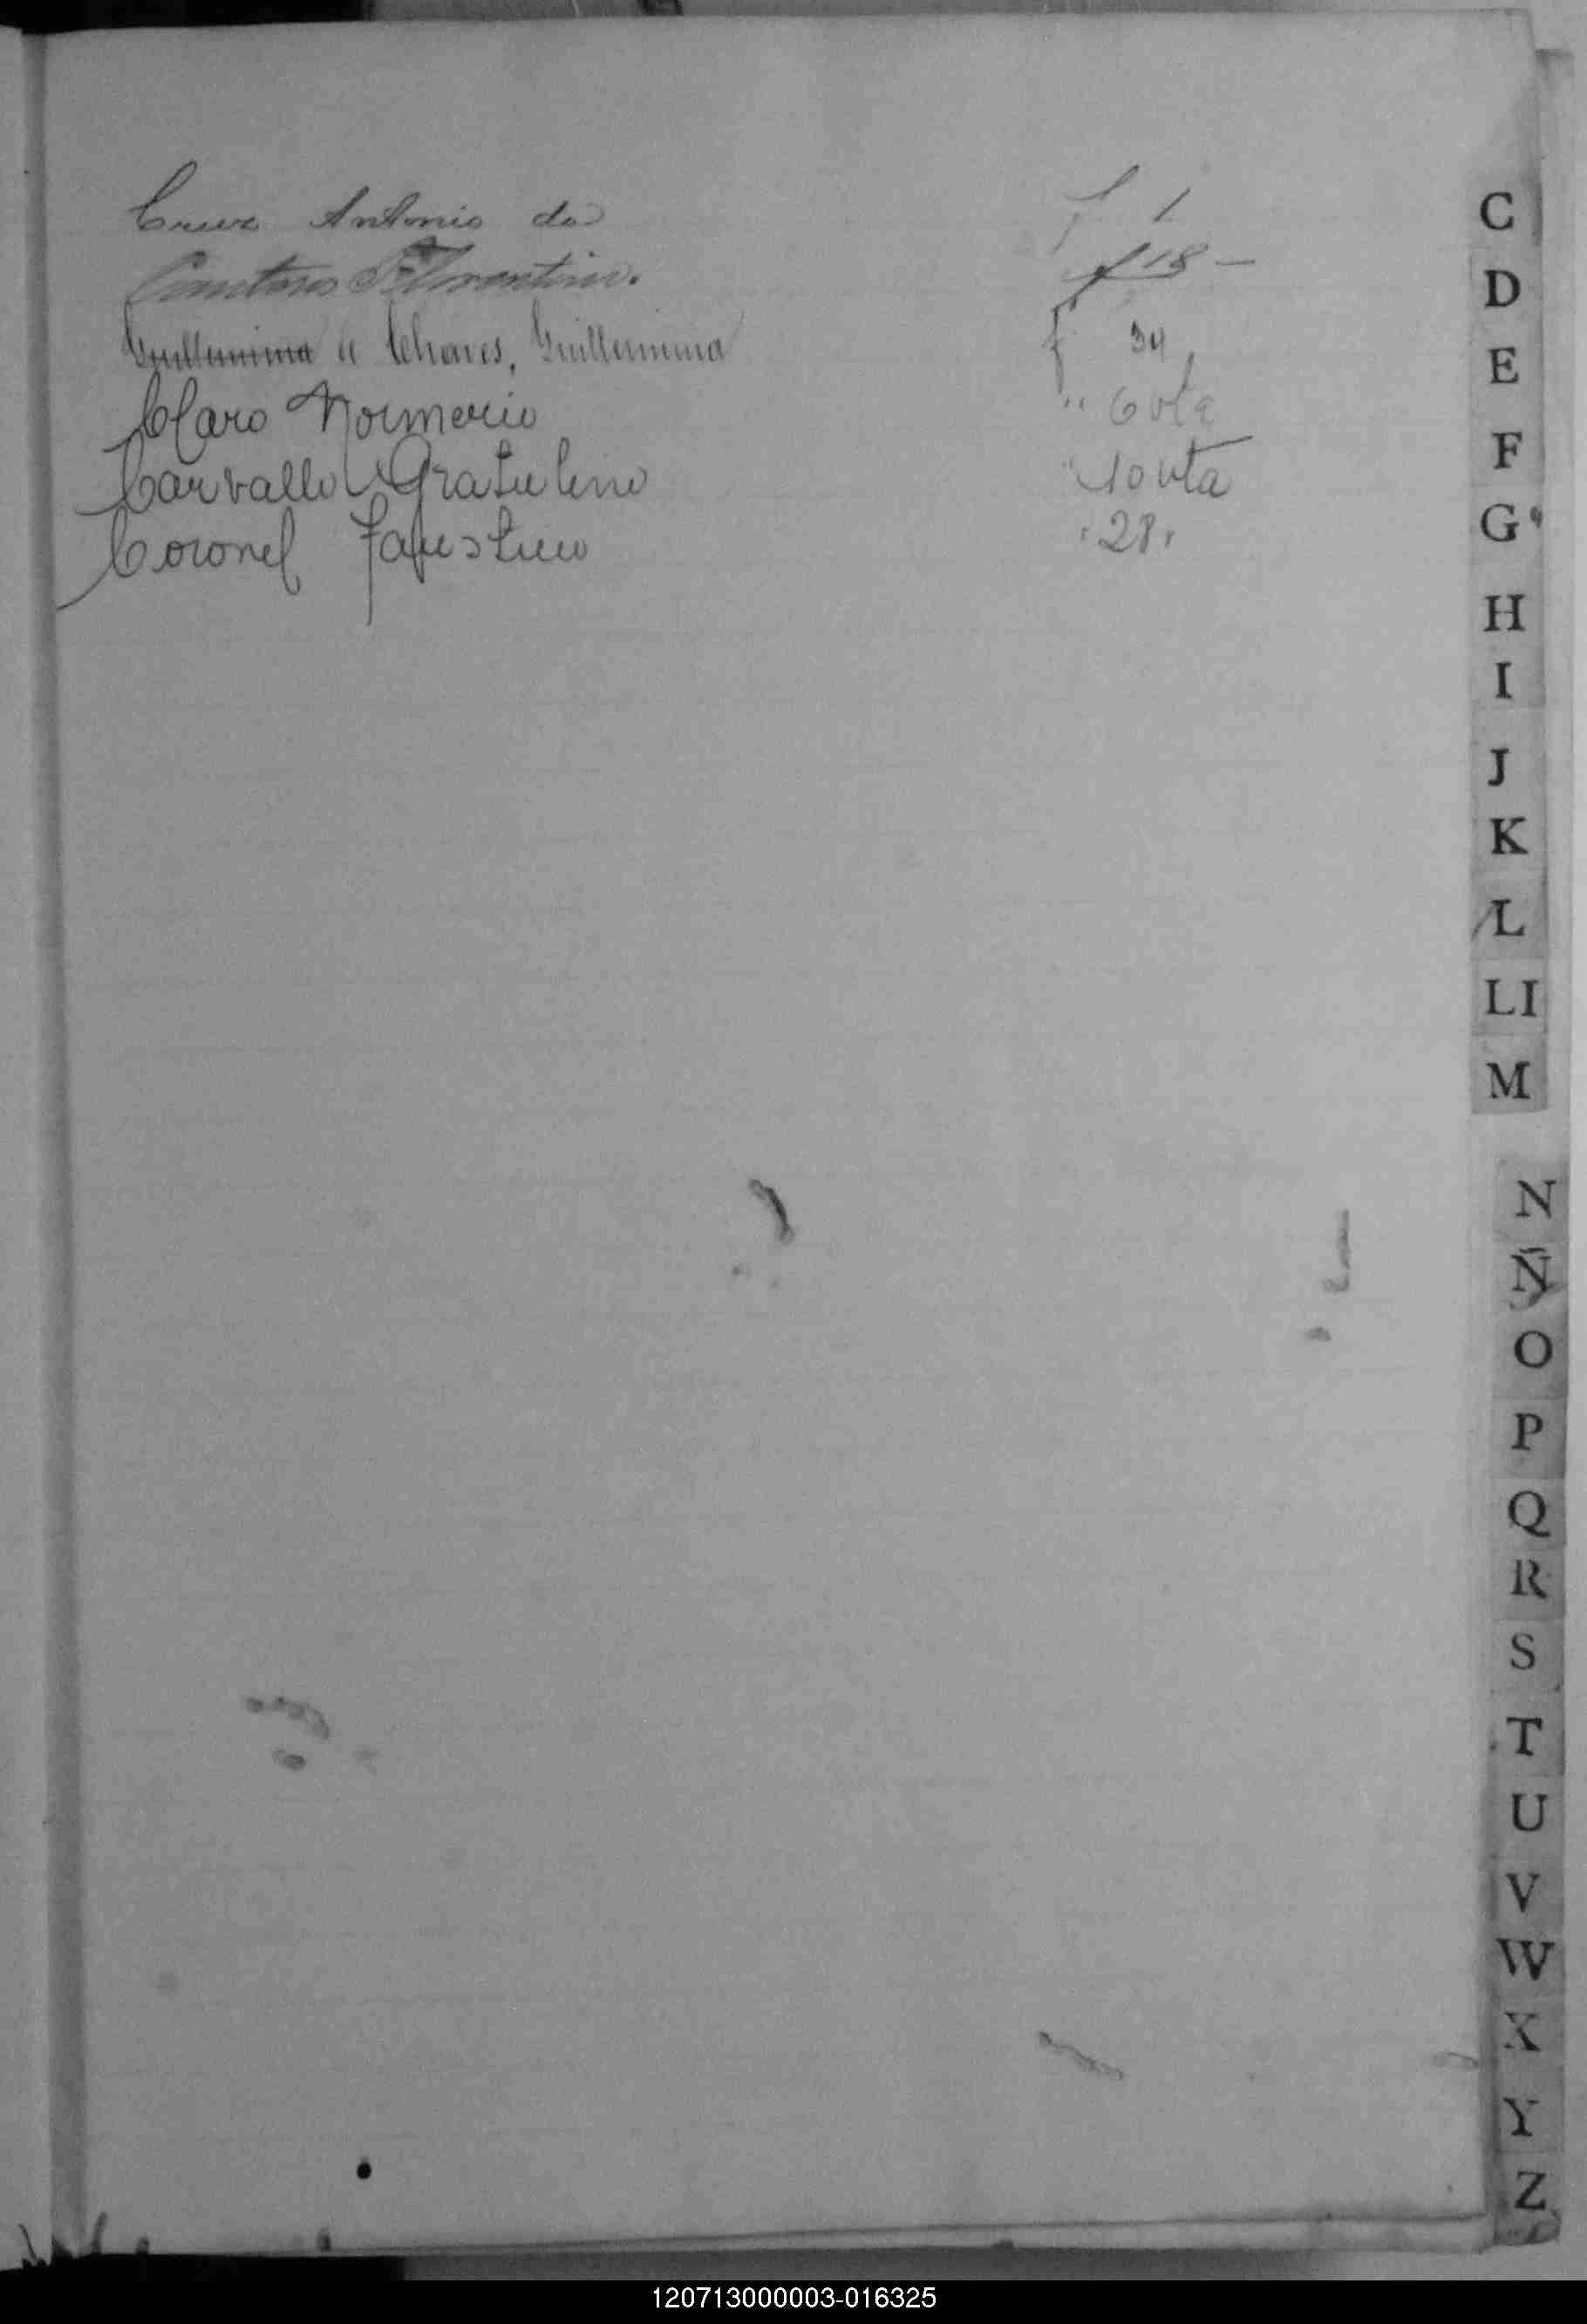 Cruz Antonio da f 1
Florentino. f 18 -
Guillermina a Chaves, Guillermina f. 34
Claro Normerio " 6 vta
Carvallo Gratulino " 10 vta
Coronel Faustino " 28 "
C
D
E
F
G
H
I
J
K
L
LI
M
N
Ñ
O
P
Q
R
S
T
U
V
W
X
Y
Z
120713000003-016325